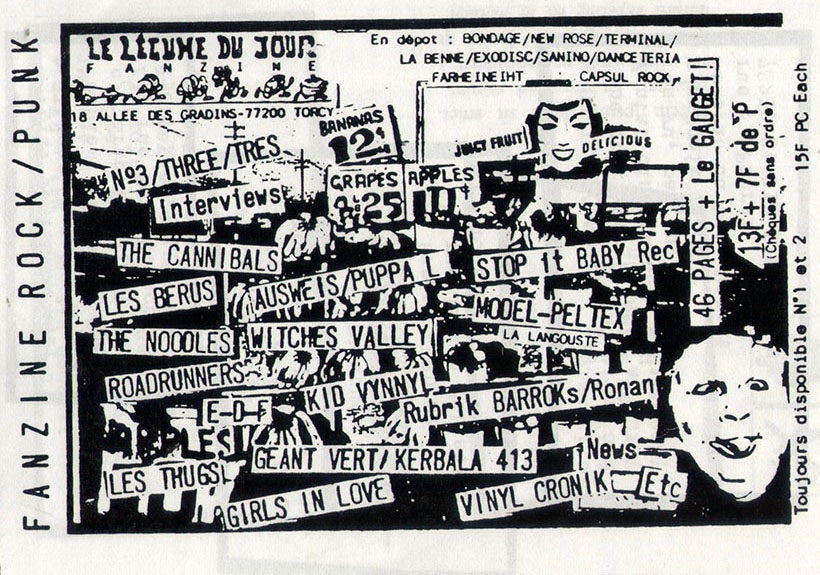 FANZINE ROCK/PUNK
LE LÉGUME DU JOUR
FANZINE
18 ALLEE DES GRADINS-77200 TORCY
En dépot : BONDAGE/NEW ROSE/TERMINAL/
LA BENNE/EXODISC/SANINO/DANCETERIA
FARHEINEIHT CAPSUL ROCK,
BANANAS
12¢
JUICY FRUIT
DELICIOUS
GRAPES
25
APPLES
Nº3/THREE/TRES
Interviews
THE CANNIBALS
LES BERUS
AUSWEIS/PUPPA L
STOP it BABY Rec
MODEL-PELTEX
LA LANGOUSTE
THE NOODLES
WITCHES VALLEY
ROADRUNNERS
KID VYNNYL
Rubrik BARROKs/Ronan
E-D-F
GEANT VERT/KERBALA 413
News
LES THUGS
GIRLS IN LOVE
VINYL CRONIK
Etc
46 PAGES + Le GADGET!
13F + 7F de P
(Chèques sans ordre)
Toujours disponible N°1 et 2 15F PC Each